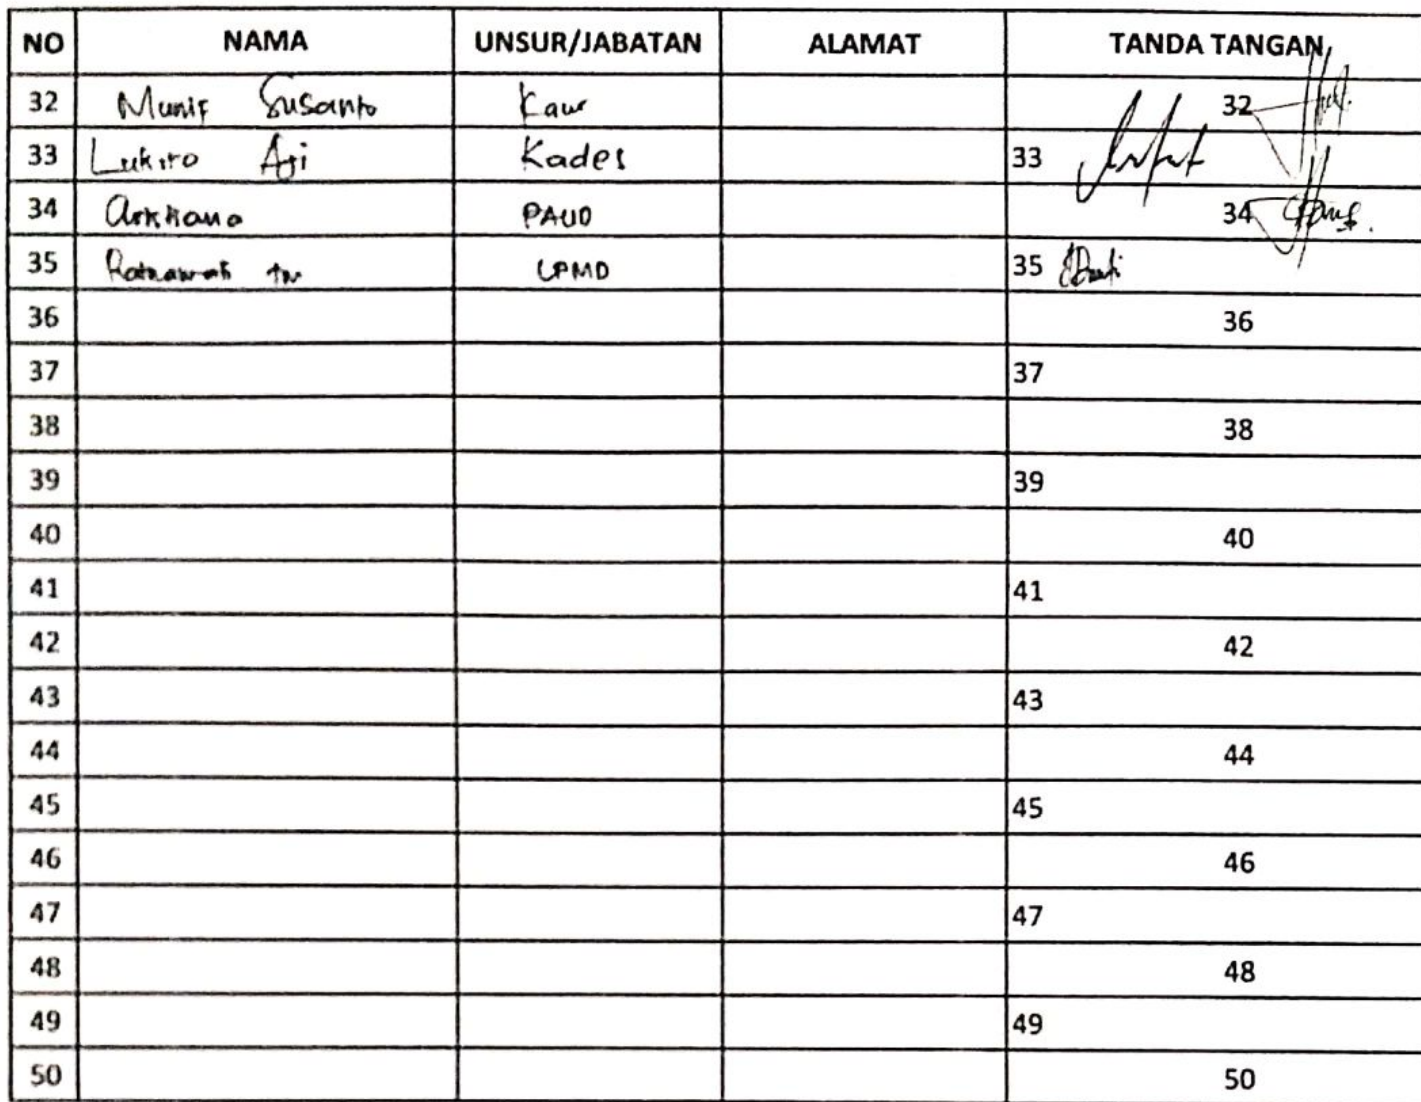 NO NAMA UNSUR/JABATAN ALAMAT TANDA TANGAN
32 Munif Susanto Kaur 32
33 Lukito Aji Kades 33
34 PAUD 34
35 Ratnawati LPMD 35
36 36
37 37
38 38
39 39
40 40
41 41
42 42
43 43
44 44
45 45
46 46
47 47
48 48
49 49
50 50